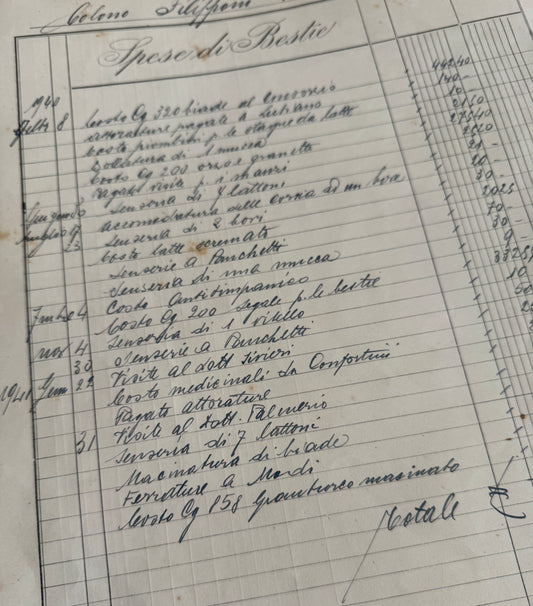 Colono Filippom
Spese di Bestie
1940
Febb 8 Costo Cg 320 biade al Consorzio 442.40
attorature pagate a Luchiano 140 -
Costo piombini p. le otaque da latte 10 -
Bollatura di 1 mucca 21.50
Costo Cg 200 orzo e granetta 275.40
Pagate visite p. i mauri 25.20
Giugno Senseria di 4 lattoni 21 -
luglio 9 accomodatura delle corna ad un bove 20 -
23 Senseria di 2 bovi 30 -
Costo latte scremato 20.25
Senserie a Banchetti 70 -
Senseria di una mucca 30 -
Costo antitimpanico 9 -
7mbre 4 Costo Cg 200 segale p. le bestie
Senseria di 1 vitello 10
nov 4 Senserie a Banchetti
30 Visite al Dott
1941 Genn 22 Costo medicinali da Confortini
Pagato attorature
Visite al Dott. Palmerio
31 Senseria di 7 lattoni
Macinatura di biade
Ferrature a
Costo Cg 158 granturco macinato
Totale